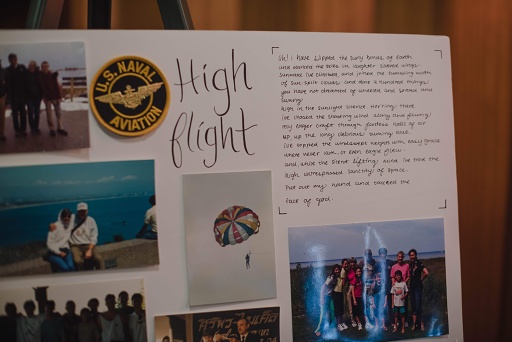 U.S. NAVAL
AVIATION
High
flight
Oh! I have slipped the surly bonds of Earth
and danced the skies on laughter silvered wings;
Sunward I've climbed, and joined the tumbling mirth
of sun split clouds, and done a hundred things
you have not dreamed of wheeled and soared and
swung
High in the sunlit silence. Hov'ring there
I've chased the shouting wind along and flung
my eager craft through footless halls of air
up, up the long, delirious burning blue
I've topped the windswept heights with easy grace
where never lark, or even eagle flew
and, while the silent lifting mind I've trod the
high untrespassed sanctity of space
Put out my hand and touched the
face of God.